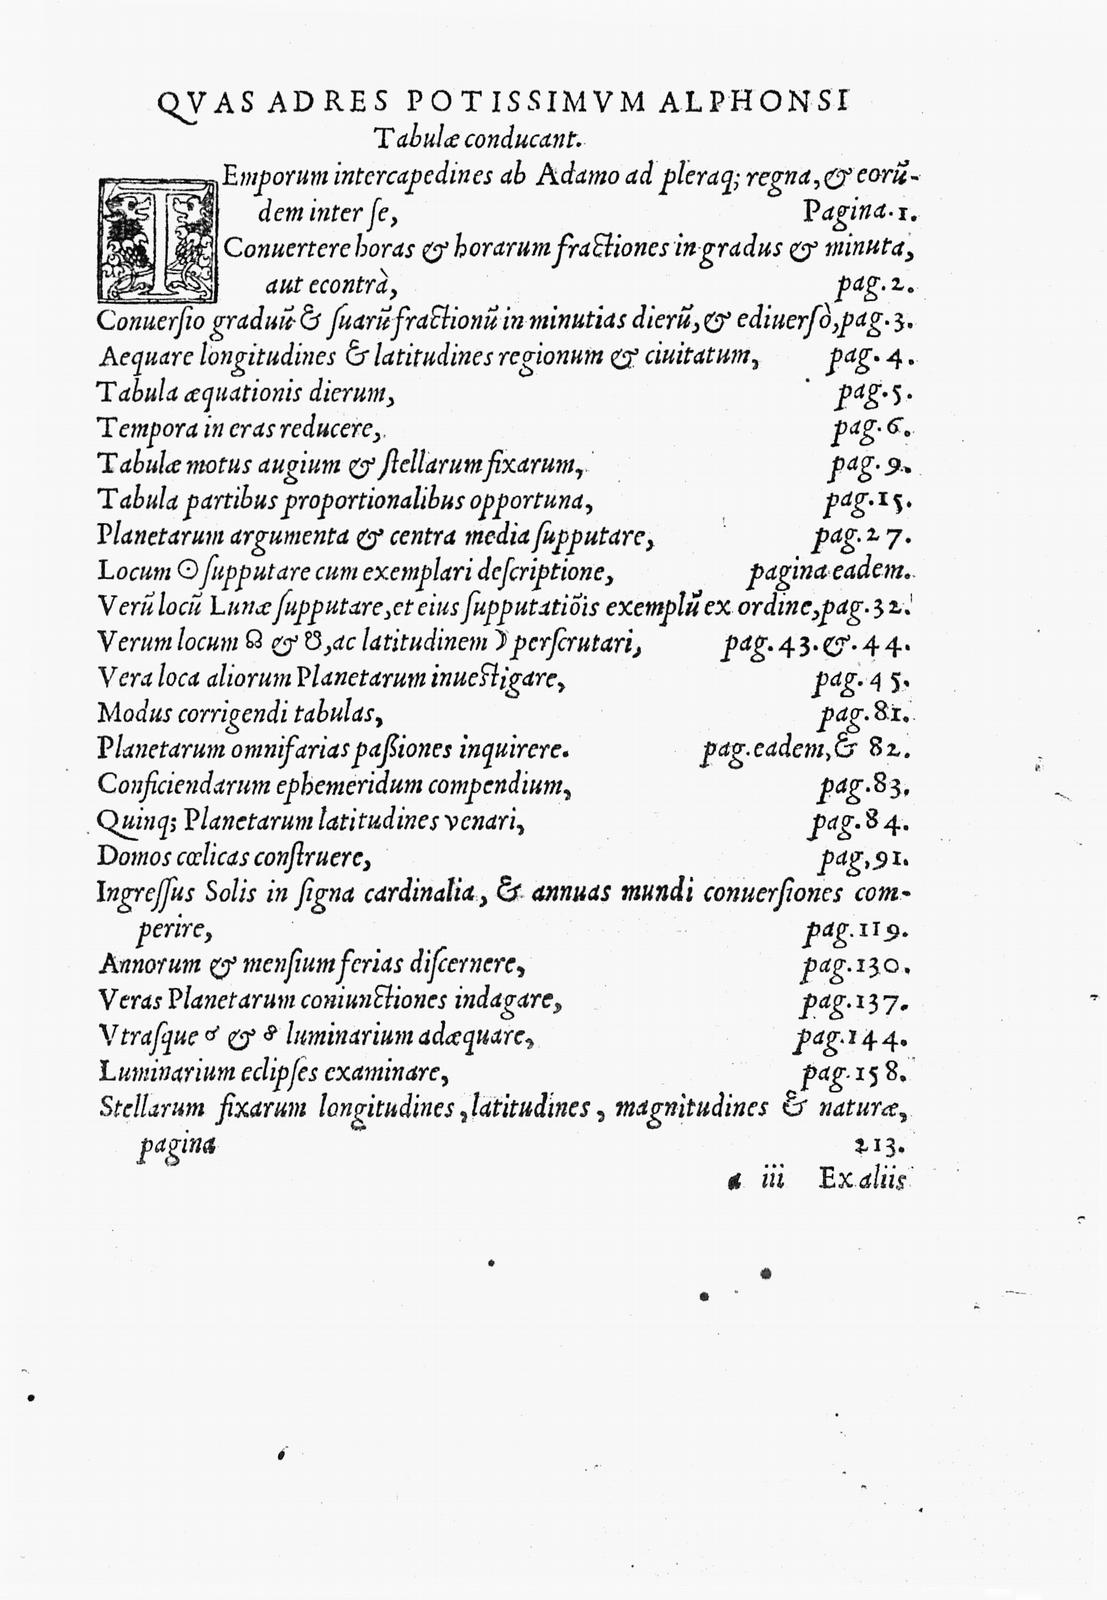 QVAS AD RES POTISSIMVM ALPHONSI
Tabulæ conducant.
TEmporum intercapedines ab Adamo ad pleraq; regna, & eorũ-
dem inter ſe, Pagina.1.
Conuertere horas & horarum fractiones in gradus & minuta,
aut econtrà, pag.2.
Conuerſio graduũ & ſuarũ fractionũ in minutias dierũ, & ediuerſò, pag.3.
Aequare longitudines & latitudines regionum & ciuitatum, pag.4.
Tabula æquationis dierum, pag.5.
Tempora in eras reducere, pag.6.
Tabulæ motus augium & ſtellarum fixarum, pag.9.
Tabula partibus proportionalibus opportuna, pag.15.
Planetarum argumenta & centra media ſupputare, pag.27.
Locum ☉ ſupputare cum exemplari deſcriptione, pagina eadem.
Verũ locũ Lunæ ſupputare, et eius ſupputatiõis exemplũ ex ordine, pag.32.
Verum locum ☊ & ☋, ac latitudinem ☽ perſcrutari, pag.43.&.44.
Vera loca aliorum Planetarum inueſtigare, pag.45.
Modus corrigendi tabulas, pag.81.
Planetarum omnifarias paſsiones inquirere. pag.eadem, & 82.
Conficiendarum ephemeridum compendium, pag.83.
Quinq; Planetarum latitudines venari, pag.84.
Domos cœlicas conſtruere, pag,91.
Ingreſſus Solis in ſigna cardinalia, & annuas mundi conuerſiones com-
perire, pag.119.
Annorum & menſium ferias diſcernere, pag.130.
Veras Planetarum coniunctiones indagare, pag.137.
Vtraſque ☌ & ☍ luminarium adæquare, pag.144.
Luminarium eclipſes examinare, pag.158.
Stellarum fixarum longitudines, latitudines, magnitudines & naturæ,
pagina 213.
a iii Ex aliis